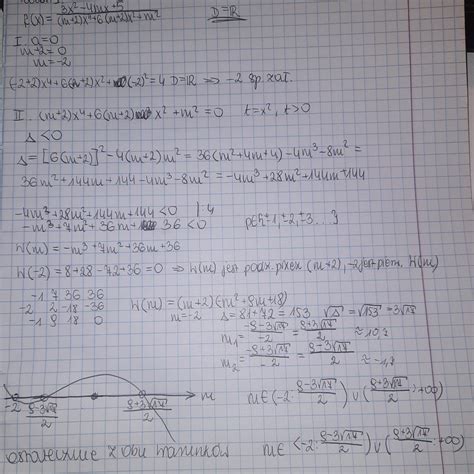 f(x) = (3x²-4mx+5)/((m+2)x⁴+6(m+2)x²+m²) D=ℝ
I. a=0
m+2=0
m=-2
(-2+2)x⁴+6(-2+2)x²+(-2)²=4 D=ℝ ⇒ -2 sp. zał.
II. (m+2)x⁴+6(m+2)x²+m²=0 t=x², t>0
Δ<0
Δ=[6(m+2)]²-4(m+2)m²=36(m²+4m+4)-4m³-8m²=
36m²+144m+144-4m³-8m²=-4m³+28m²+144m+144
-4m³+28m²+144m+144<0 |:4
-m³+7m²+36m+36<0 p∈{±1,±2,±3...}
W(m)=-m³+7m²+36m+36
W(-2)=8+28-72+36=0 ⇒ W(m) jest podz. przez (m+2), -2 jest pierw. W(m)
-1 7 36 36
-2 2 -18 -36
-1 9 18 0
W(m)=(m+2)(-m²+9m+18)
m=-2 Δ=81+72=153 √Δ=√153=3√17
m₁=(-9-3√17)/-2=(9+3√17)/2≈10,7
m₂=(-9+3√17)/-2=(9-3√17)/2≈-1,7
-2 (9-3√17)/2 (9+3√17)/2 m
m∈(-2; (9-3√17)/2)∪((9+3√17)/2; +∞)
ostatecznie z obu warunków m∈<-2; (9-3√17)/2)∪((9+3√17)/2; +∞)